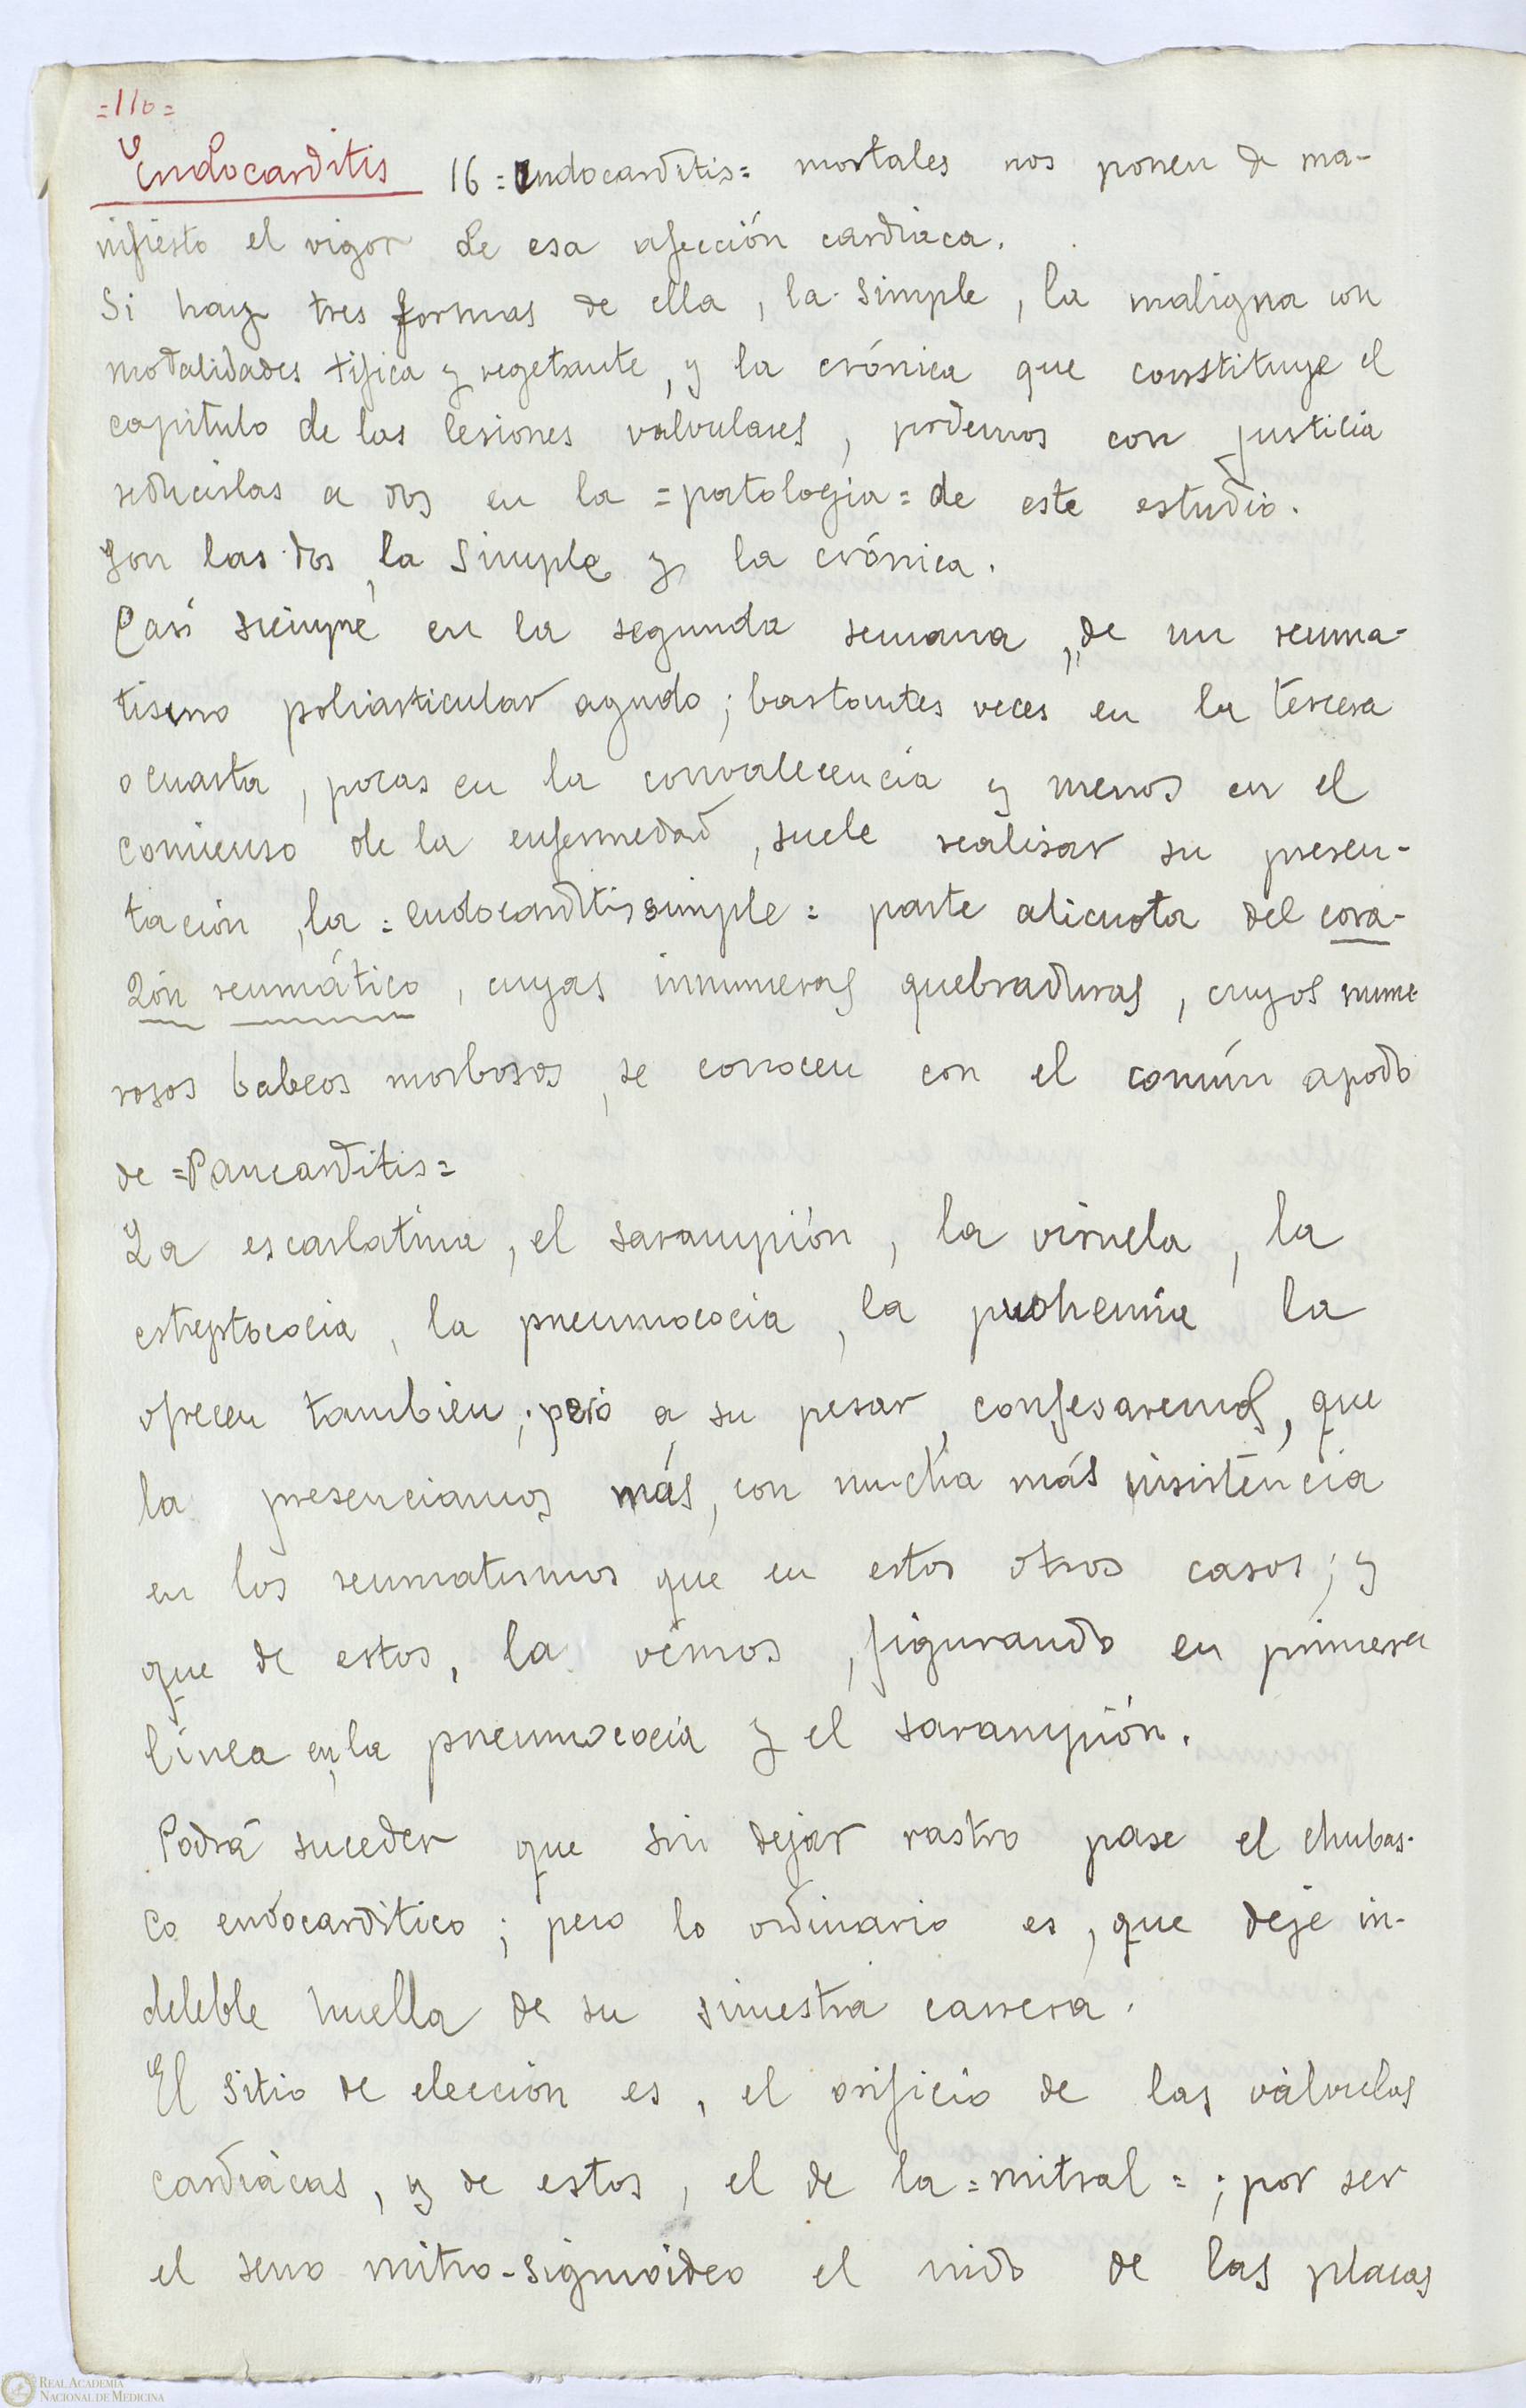 =116=
Endocarditis 16 =Endocarditis= mortales nos ponen de ma-
nifiesto el vigor de esa afección cardiaca.
Si hay tres formas de ella, la simple, la maligna con
modalidades tifica y vegetante, y la crónica que constituye el
capitulo de las lesiones valvulares, podemos con justicia
reducirlas a dos en la =patologia= de este estudio.
Son las dos, la simple y la crónica.
Casi siempre en la segunda semana, de un reuma-
tismo poliarticular agudo; bastantes veces en la tercera
o cuarta, pocas en la convalecencia y menos en el
comienso de la enfermedad, suele realisar su presen-
tación, la =endocarditis simple= parte alicuota del cora-
zón reumático, cuyas innumeras quebraduras, cuyos nume
rosos babeos morbosos, se conocen con el común apodo
de =Pancarditis=
La escarlatina, el sarampión, la viruela, la
estreptococia, la pneumococia, la puohemia la
ofrecen tambien; pero a su pesar, confesaremos, que
la presenciamos más, con mucha más insistencia
en los reumatismos que en estos otros casos; y
que de estos, la vémos, figurando en primera
línea en la pneumococia y el sarampión.
Podrá suceder que sin dejar rastro pase el chubas-
co endocarditico; pero lo ordinario es, que deje in-
deleble huella de su sinestra carrera.
El sitio de elección es, el orificio de las válvulas
cardiácas, y de estos, el de la =mitral=; por ser
el seno mitro-sigmoideo el nido de las placas
REAL ACADEMIA
NACIONAL DE MEDICINA